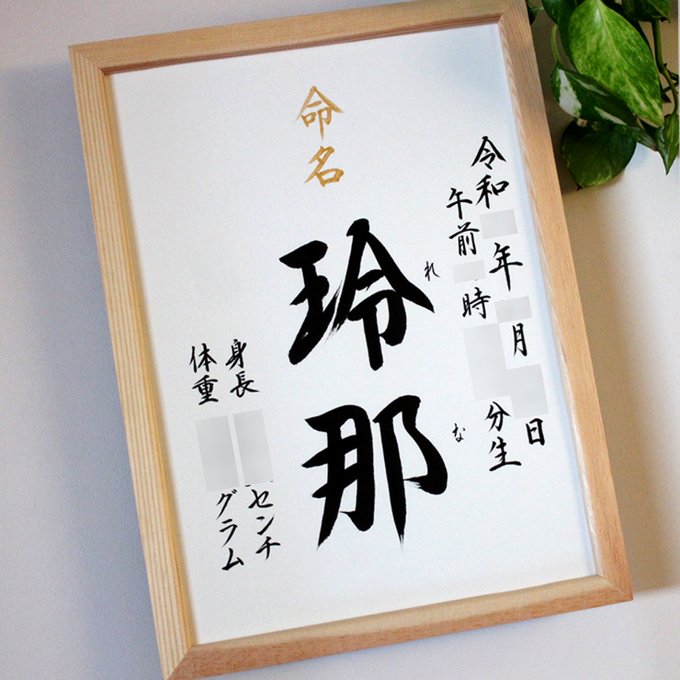 命名
令和 年 月 日
午前 時 分生
玲那
れな
身長 センチ
体重 グラム